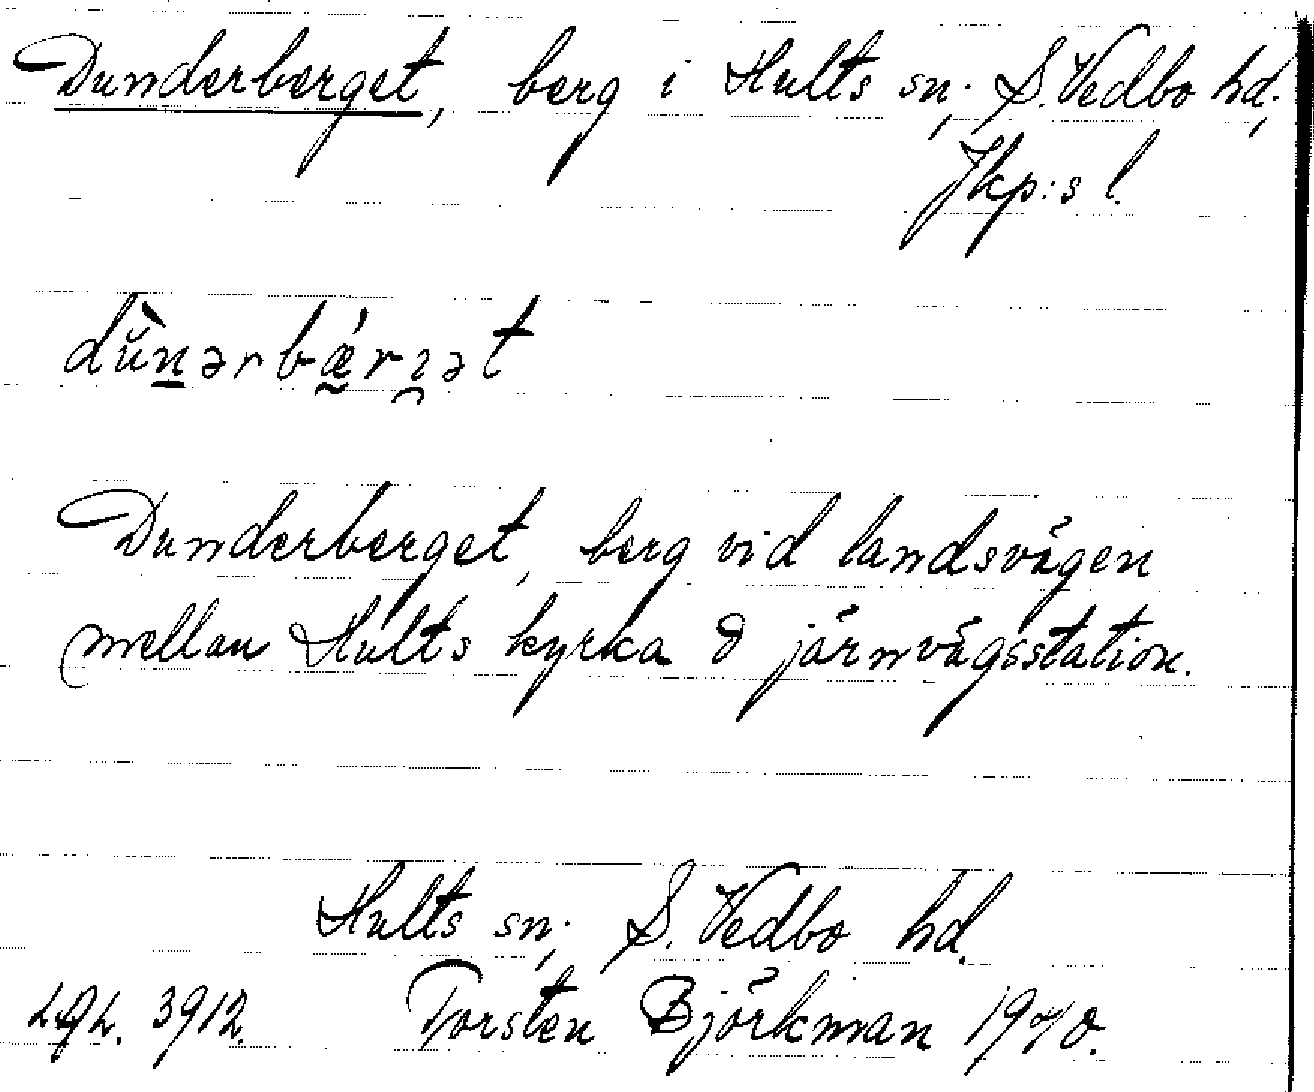 Dunderberget, berg i Hults sn., S. Vedbo hd.,
Jkp:s l.
dŭ̀n̲ərbǽ̰rɿ̯ət
Dunderberget, berg vid landsvägen
mellan Hults kyrka & järnvägsstation.
Hults sn., S. Vedbo hd.
3912. Torsten Björkman 1940.